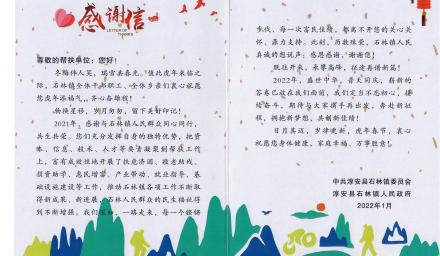 感谢信
LETTER OF THANKS
尊敬的帮扶单位：您好！
冬腊伴人笑，瑞雪兆春光。值此虎年来临之
际，石林镇全体干部职工、全体乡亲们衷心祝愿
您虎年添福气，齐心奔锦程！
物换星移，岁月匆匆，留下美好印记！
2021年，感谢与石林镇人民群众同心同行，
共生共荣。您们充分发挥自身的独特优势，把资
本、信息、技术、人才等要素凝聚到帮扶工作
上，富有成效地开展了扶危济困、敬老助残、
捐资助学、惠民增富、产业带动、就业指导、基
础设施建设等工作，推动石林镇各项工作不断取
得新成果、新进展，石林人民群众的民生福祉得
到不断增强。我们深知，一路走来，每一个铿锵
步伐、每一次富民佳绩，都离不开贵的关心关
怀、鼎力支持。此刻，历数殊荣，石林镇人民
真诚的想说声：感恩感谢，谢谢您！
既往开来，永攀高峰，征途再谱新篇！
2022年，盛世中华，普天同庆，崭新的
答卷已放在我们面前，我们定当不忘初心，接
续奋斗，期待与大家携手再出发，奔赴新征
程，拥抱新梦想，共创新佳绩！
日月其迈，岁律更新，虎年春节，衷心
祝愿您身体健康，家庭幸福，万事胜意！
中共淳安县石林镇委员会
淳安县石林镇人民政府
2022年1月